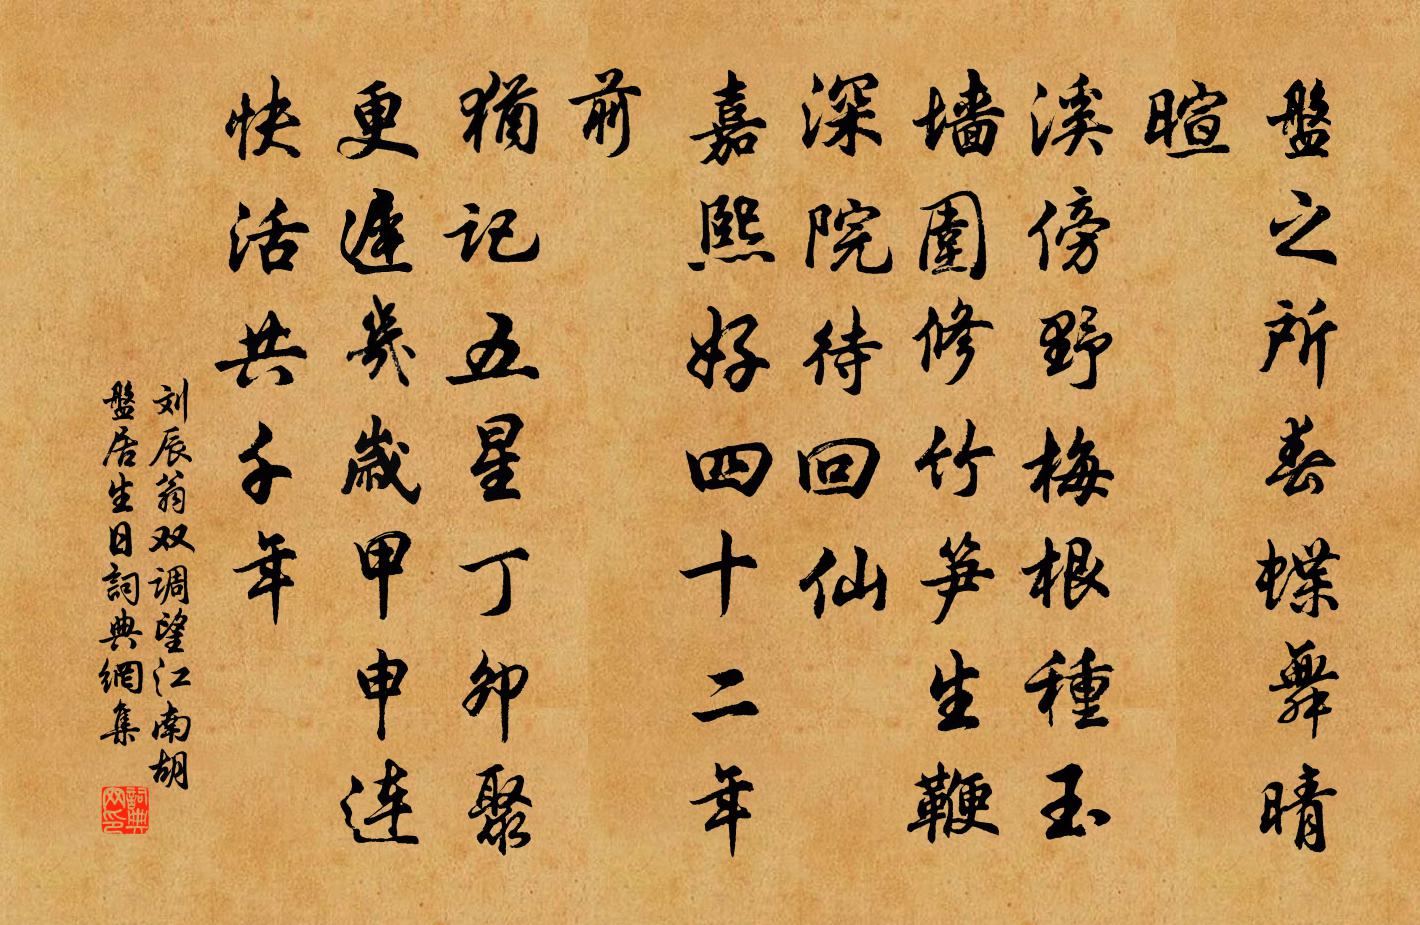 盤之所春蝶舞晴
暄
溪傍野梅根種玉
墻圍修竹笋生鞭
深院待回仙
嘉熙好四十二年
前
猶記五星丁卯聚
更遲幾歲甲申連
快活共千年
刘辰翁双调望江南胡
盤居生日詞典網集
詞典网印